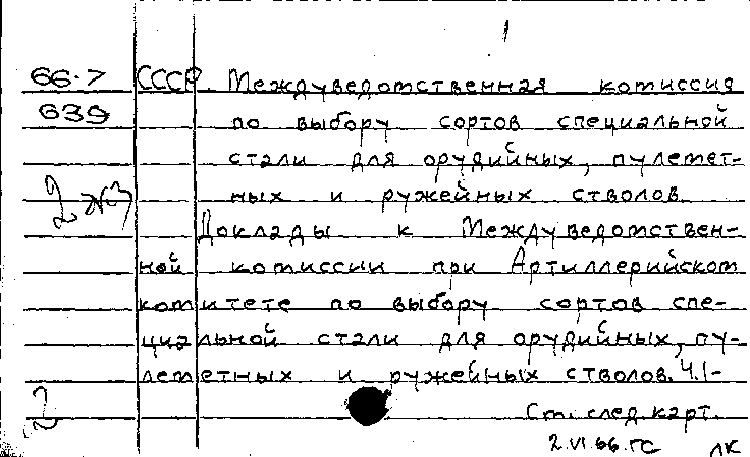 1
66-7 СССР. Междуведомственная комиссия
639 по выбору сортов специальной
стали для орудийных, пулемет-
ных и ружейных стволов.
Доклады к Междуведомствен-
ной комиссии при Артиллерийском
комитете по выбору сортов спе-
циальной стали для орудийных, пу-
леметных и ружейных стволов. Ч.1-
2 См. след. карт.
2.VI.66. ГС ЛК